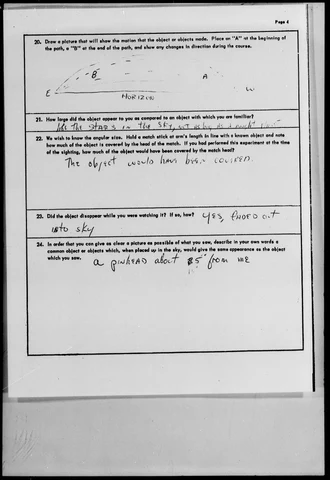 Page 4
20. Draw a picture that will show the motion that the object or objects made. Place an "A" at the beginning of
the path, a "B" at the end of the path, and show any changes in direction during the course.
B
A
E
W
HORIZON
21. How large did the object appear to you as compared to an object with which you are familiar?
like the STARS in the SKY, not as big as a
22. We wish to know the angular size. Hold a match stick at arm's length in line with a known object and note
how much of the object is covered by the head of the match. If you had performed this experiment at the time
of the sighting, how much of the object would have been covered by the match head?
The object would have been covered.
23. Did the object disappear while you were watching it? If so, how? YES, FADED out
into SKY
24. In order that you can give as clear a picture as possible of what you saw, describe in your own words a
common object or objects which, when placed up in the sky, would give the same appearance as the object
which you saw.
a pinhead about 5' from me